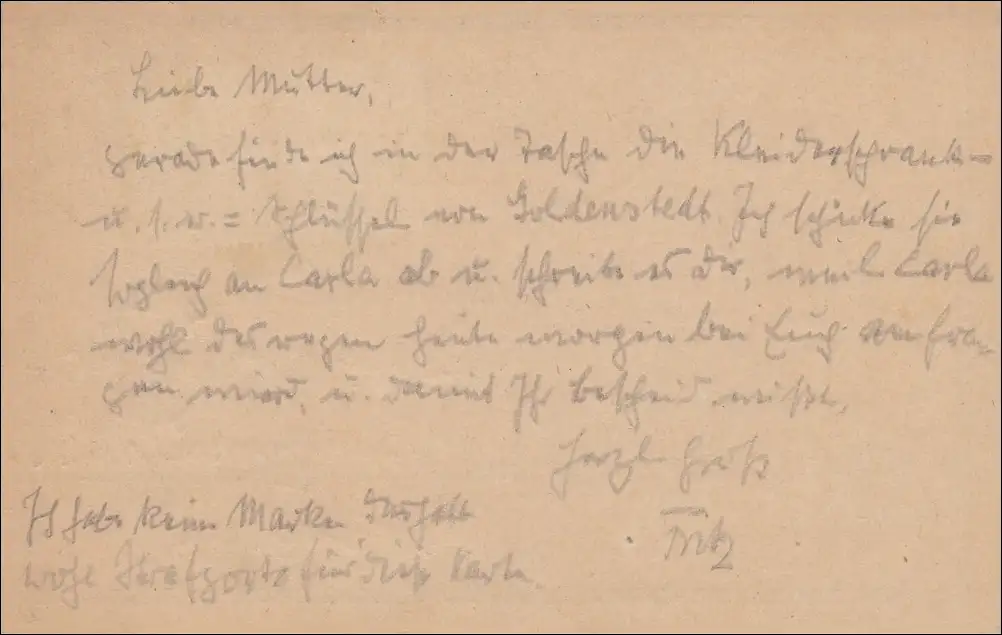 Liebe Mutter,
gerade finde ich in der Tasche die Kleiderschrank-
u. s. w. = Schlüssel von Goldenstedt. Ich schicke sie
sogleich an Carla ab u. schreibe es Dir, weil Carla
wohl deswegen heute morgen bei Euch anfra-
gen wird, u. damit Ihr Bescheid wißt.
Herzl. Gruß
Fritz
Ich habe keine Marken deshalb
wohl Strafporto für diese Karte.